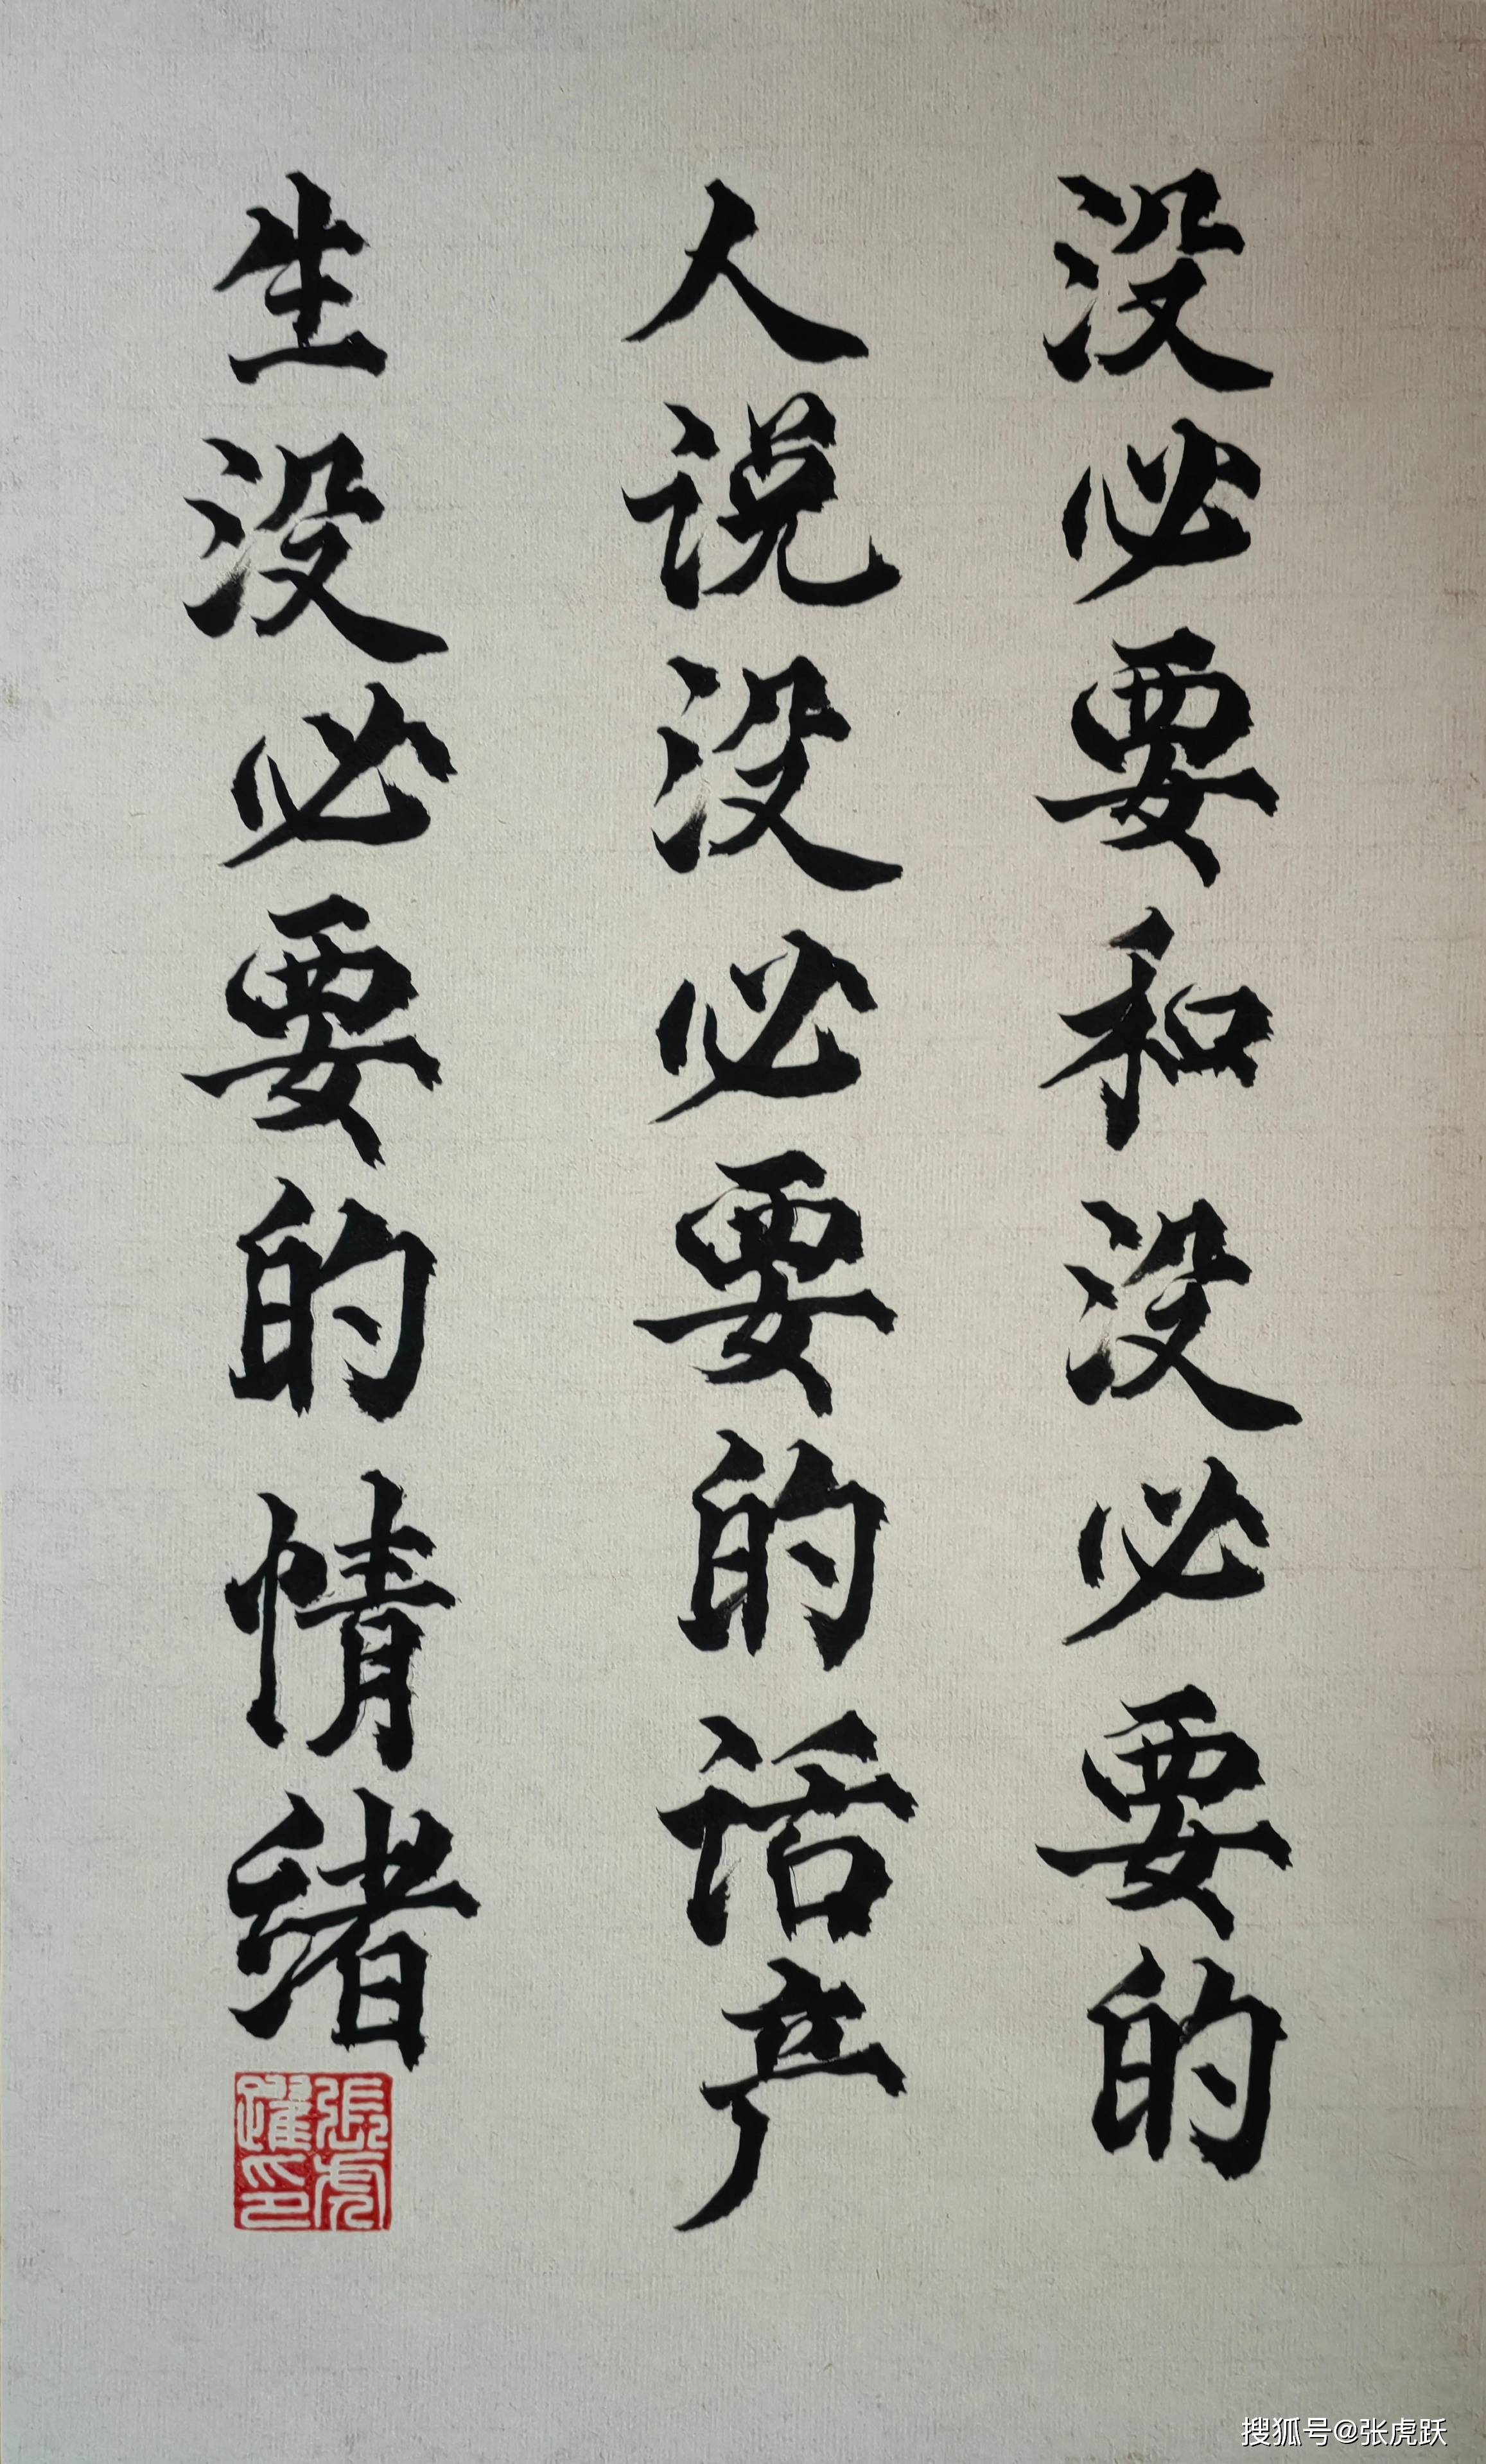 没必要和没必要的
人说没必要的话产
生没必要的情绪
張虎躍印
搜狐号@张虎跃